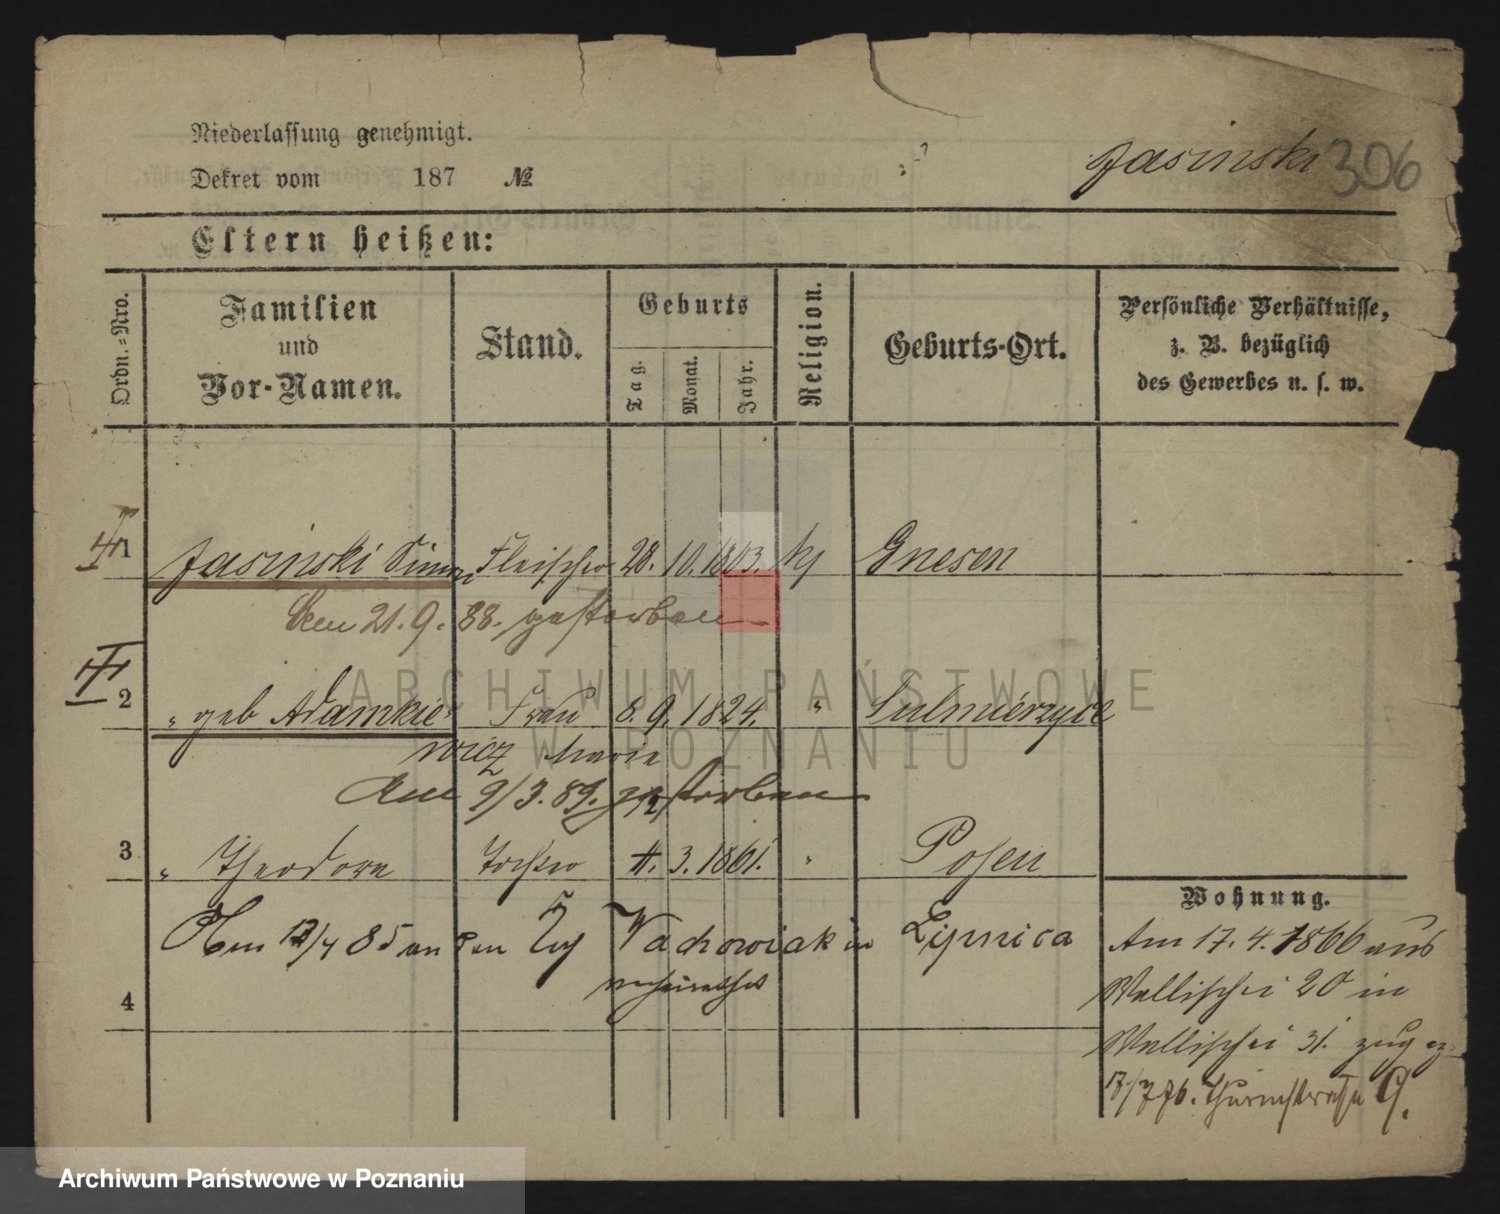 Niederlassung genehmigt.
Dekret vom 187 №
Jasinski 306
Eltern heißen:
Ordn.-Nro.
Familien
und
Vor-Namen.
Stand.
Geburts
Tag.
Monat.
Jahr.
Religion.
Geburts-Ort.
Persönliche Verhältnisse,
z. B. bezüglich
des Gewerbes u. s. w.
1 Jasinski Simon Fleischer 28. 10. 1803. kj Gnesen
Den 21. 9. 88. gestorben
2 " geb Adamkie- Frau 8. 9. 1824. " Sulmierzyce
wicz Marie
Am 9/3. 89. gestorben
3 " Theodora Tochter 4. 3. 1861. " Posen
Wohnung.
Am 17/4 85 an den Wachowiak in Lipnica
verheirathet
4
Am 17. 4. 1866 aus
Wallischei 20 in
Wallischei 31. zugez
7/7 76. Thurmstrasse 9.
ARCHIWUM PAŃSTWOWE
W POZNANIU
Archiwum Państwowe w Poznaniu